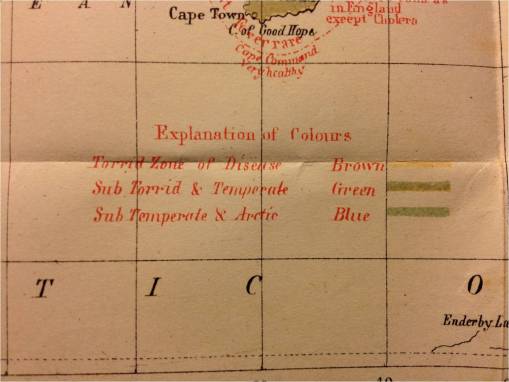 E A N
Cape Town
C. of Good Hope
Fever rare
Cape Command
Very healthy
in England
except Cholera
Explanation of Colours
Torrid Zone of Disease Brown
Sub Torrid & Temperate Green
Sub Temperate & Arctic Blue
T I C O
Enderby